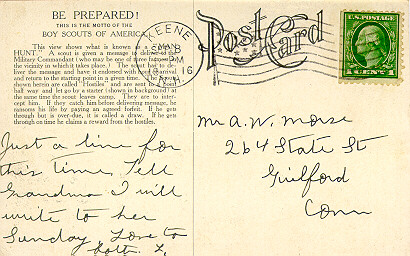 BE PREPARED!
THIS IS THE MOTTO OF THE
BOY SCOUTS OF AMERICA
This view shows what is known as a
HUNT." A scout is given a message to deliver to
Military Commandant (who may be one of three
the vicinity in which it takes place.) The scout has to de-
liver the message and have it endorsed with hour of arrival
and return to the starting point in a given time. The Scouts
shown herein are called "Hostiles" and are sent to a point
half way and let go by a starter (shown in background) at
the same time the scout leaves camp. They are to inter-
cept him. If they catch him before delivering message, he
ransoms his life by paying an agreed forfeit. If he gets
through but is over-due, it is called a draw. If he gets
through on time he claims a reward from the hostiles.
KEENE
PM
16
Post Card
U.S. POSTAGE
1 CENT 1
Just a line for
this time. Tell
Grandma I will
write to her
Sunday. Love to
both. L.
Mr A. W. Morse
264 State St
Guilford
Conn